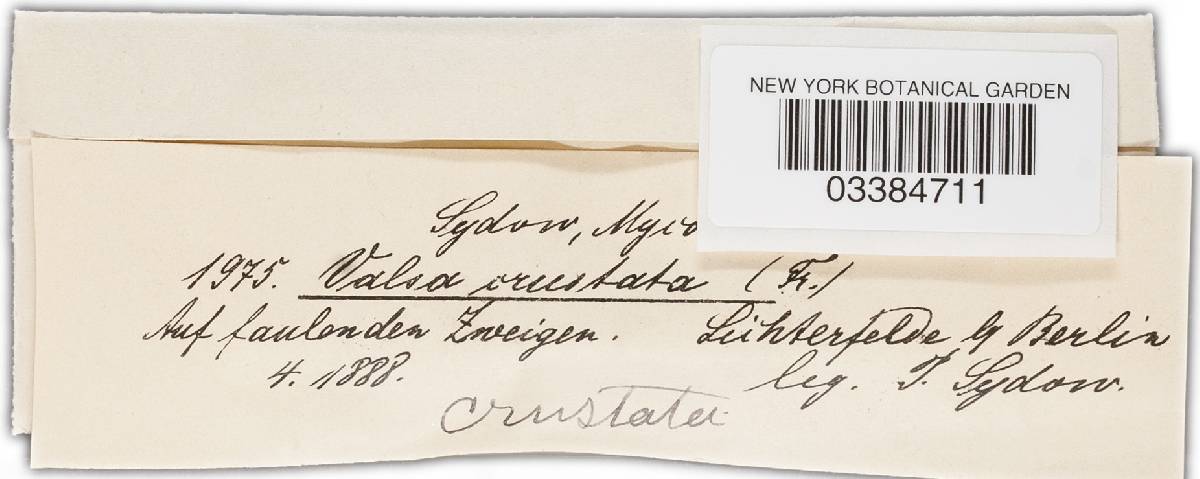 NEW YORK BOTANICAL GARDEN
03384711
Sydow, Myco
1975. Valsa crustata (Fr.)
Auf faulenden Zweigen. Lichterfelde b/ Berlin
4. 1888. leg. P. Sydow.
crustata